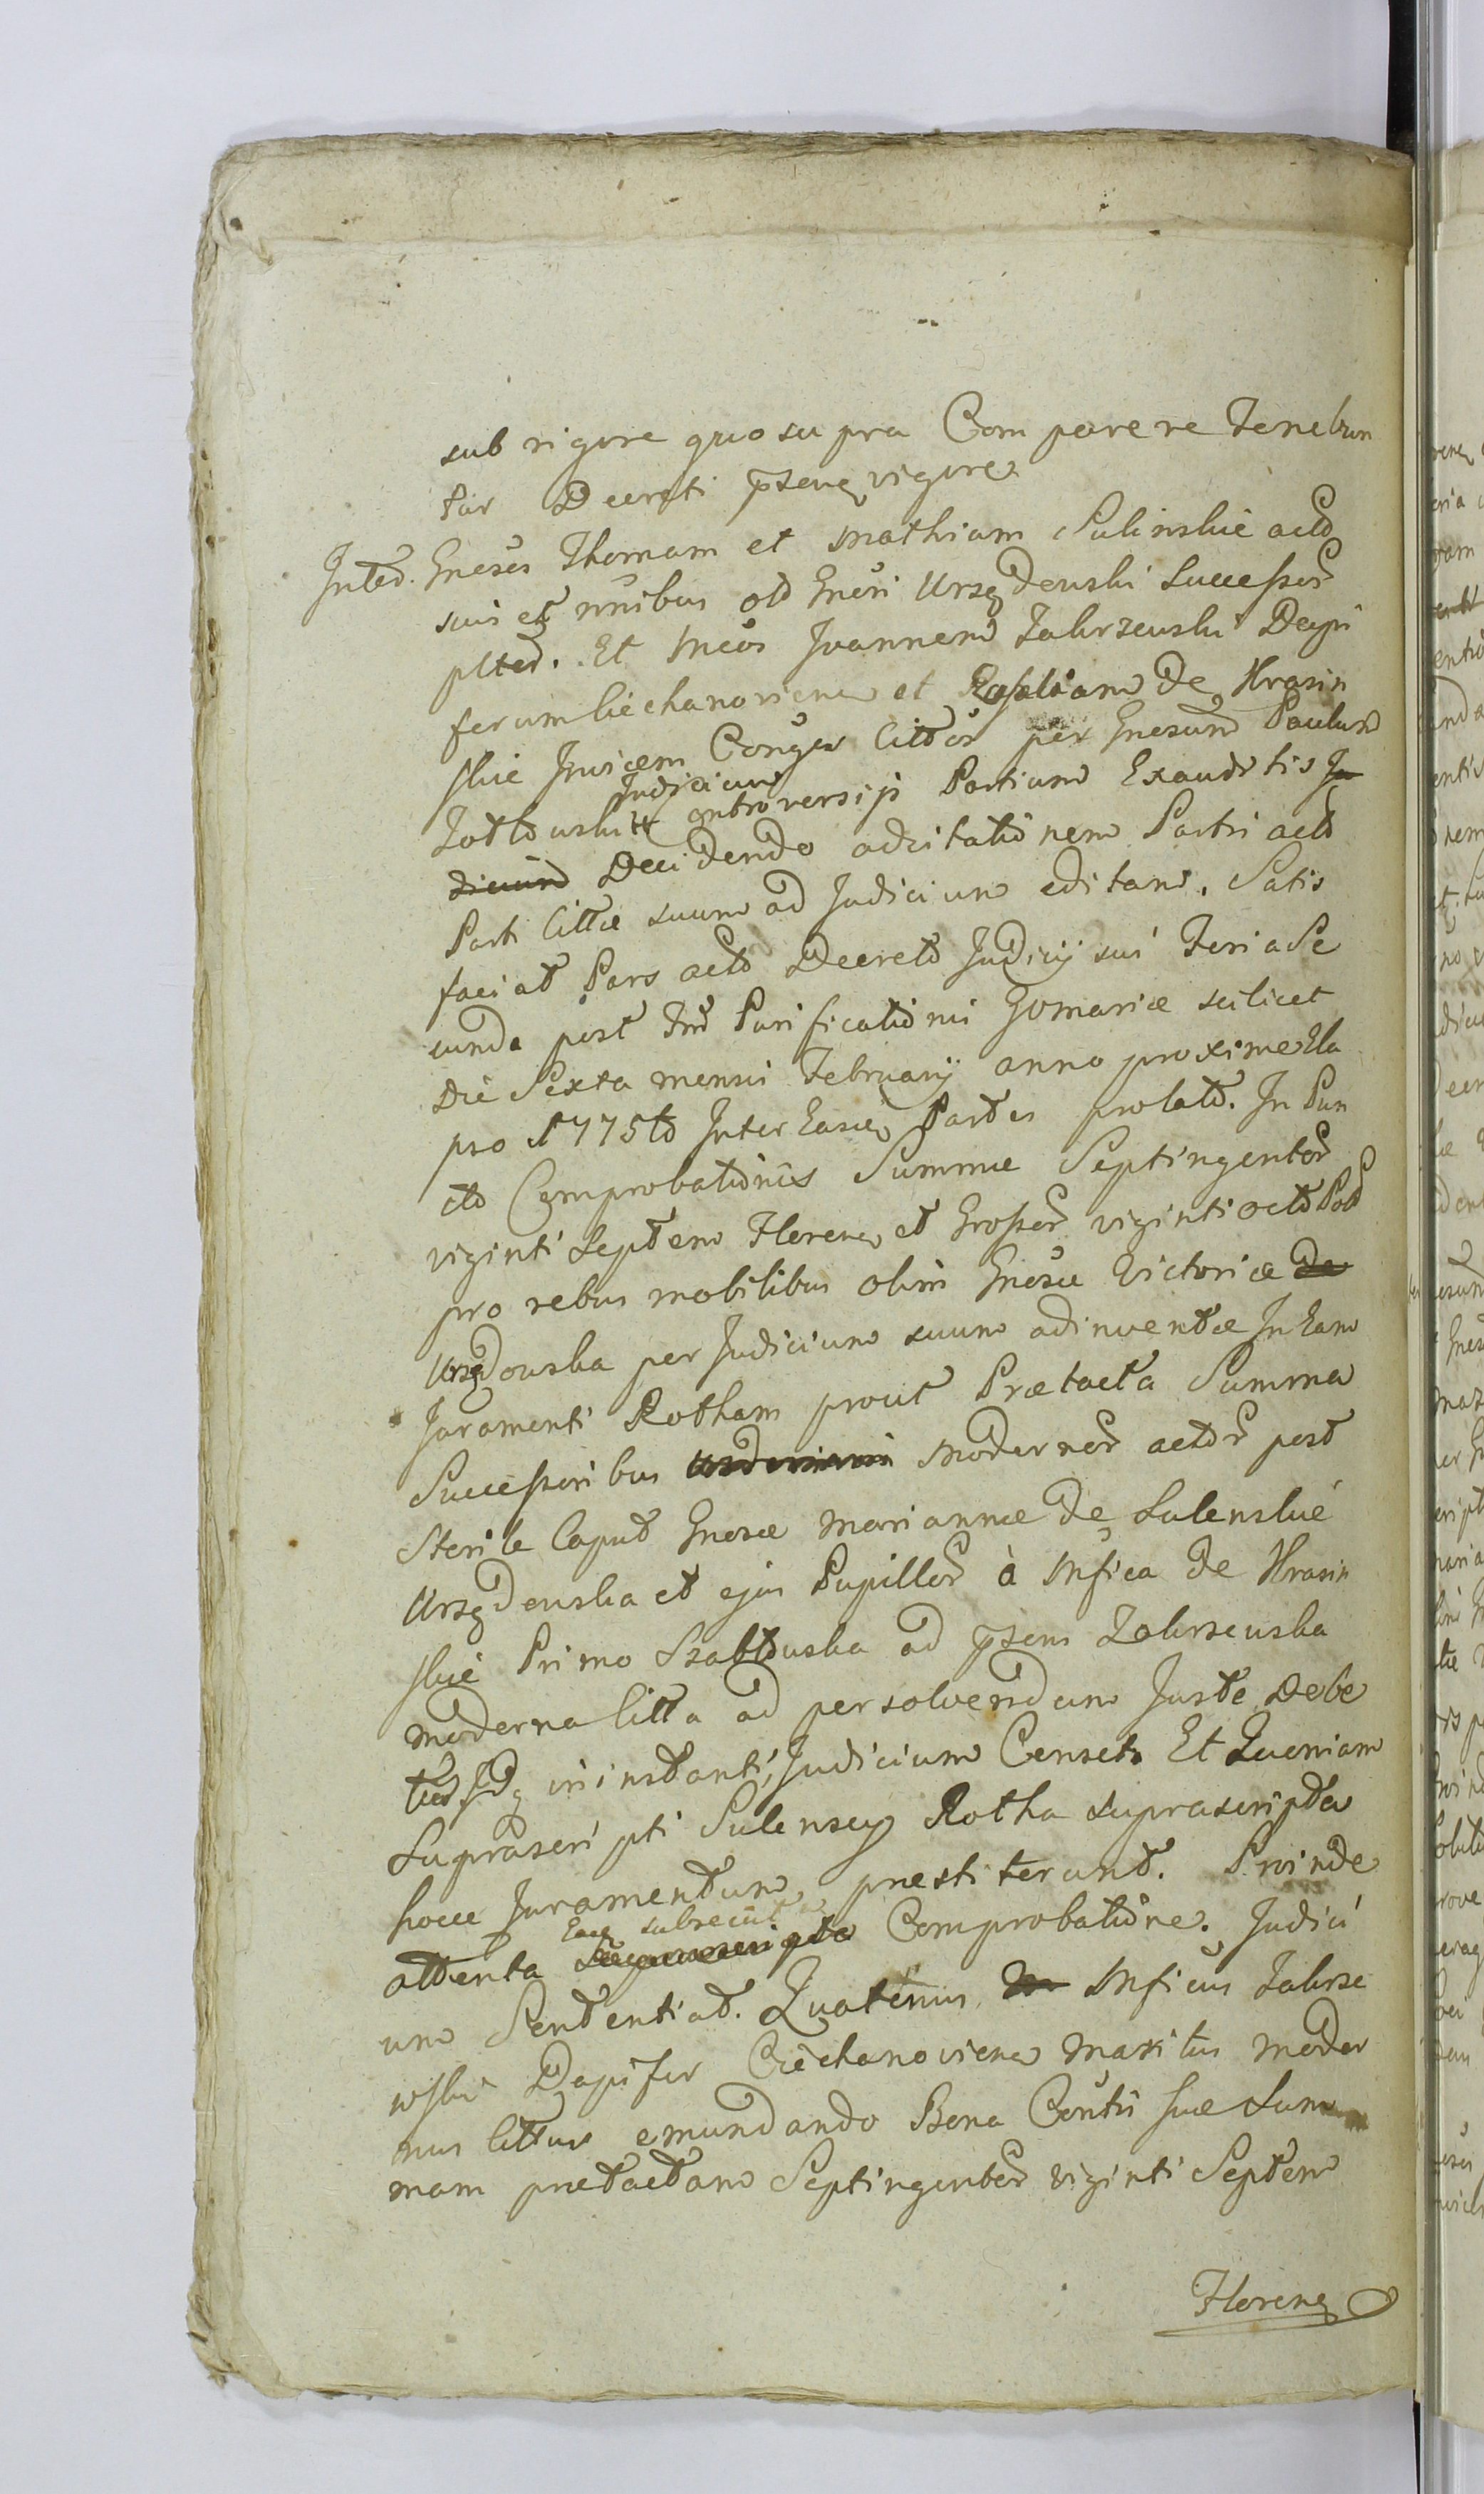 sub rigore quo supra Comparere Tenebun
tur Decreti pnsens vigore
Inter Gnesos Thomam et Mathiam Sulinskie act
suis et nnibus old Gnesi Urszdenski Successor
plted. Et Mcos Joannem Zakrzewski Dapi
ferum Ciechanoviens et De Krasin
skie Invicem Conges Cittos per Gnesum Paulum
Judicium
controversijs Partium Exauditis Ju
dicium Decidendo adcitationem Parti act
Parti Cittae suum ad Judicium editam. Satis
faciat Pars acto Decreto Judicij sui Feria Se
cunda post Fm Purificationis Gomariae scilicet
Die Sexta mensis February anno proxime Ela
pso 1775to Inter Easdem Partes prolato. In Pun
cto Comprobationis Summae Septingentor
viginti Septem Floren et Grossor viginti octo Pol
pro rebus mobilibus olim Gnesae Victoriae De
Urszdouska per Judicium suum adinventae In Eam
Juramenti Rotham prout Praetacta Summa
Successoribus modernor actor post
Sterile Caput Gnesae Mariannae De Sulenskie
Urszdenska et ejus Pupillor à Mfica De Krasin
skie Primo Szabłouska ad pnsens Zakrzeuska
moderna Citta ad persolvendum Juste Debe
tur in instanti, Judicium Censet. Et Quoniam
Suprascripti Sulenscy Rotha suprascripta
hocce Juramentum praestiterunt. Proinde
Eaq subsecuta
attenta Suprascripta Comprobatione. Judici
um Sententiat. Quatenus Mficus Zakrze
wski Dapifer Ciechanoviens maritus moder
nus Cittus emundando Bona Contis suae Sum
mam praetactam Septingentor viginti Septem
Floren